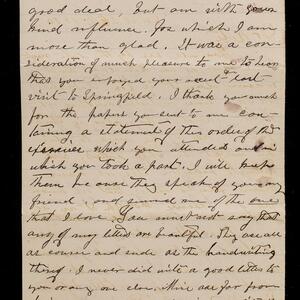 good deal, but am with your
kind influence. for which I am
more than glad. It was a con-
sideration of much pleasure to me to hear
that you enjoyed your last
visit to Springfield. I thank you much
for the papers you sent to me con-
taining a statement of the order of the
exercises which you attended and in
which you took a part. I will keep
them because they speak of you my
friend, and remind me of the one
that I love. You must not say that
any of my letters are beautiful. They are all
as course and rude as the handwriting
thing. I never did write a good letter to
you or any one else. Mine are far from